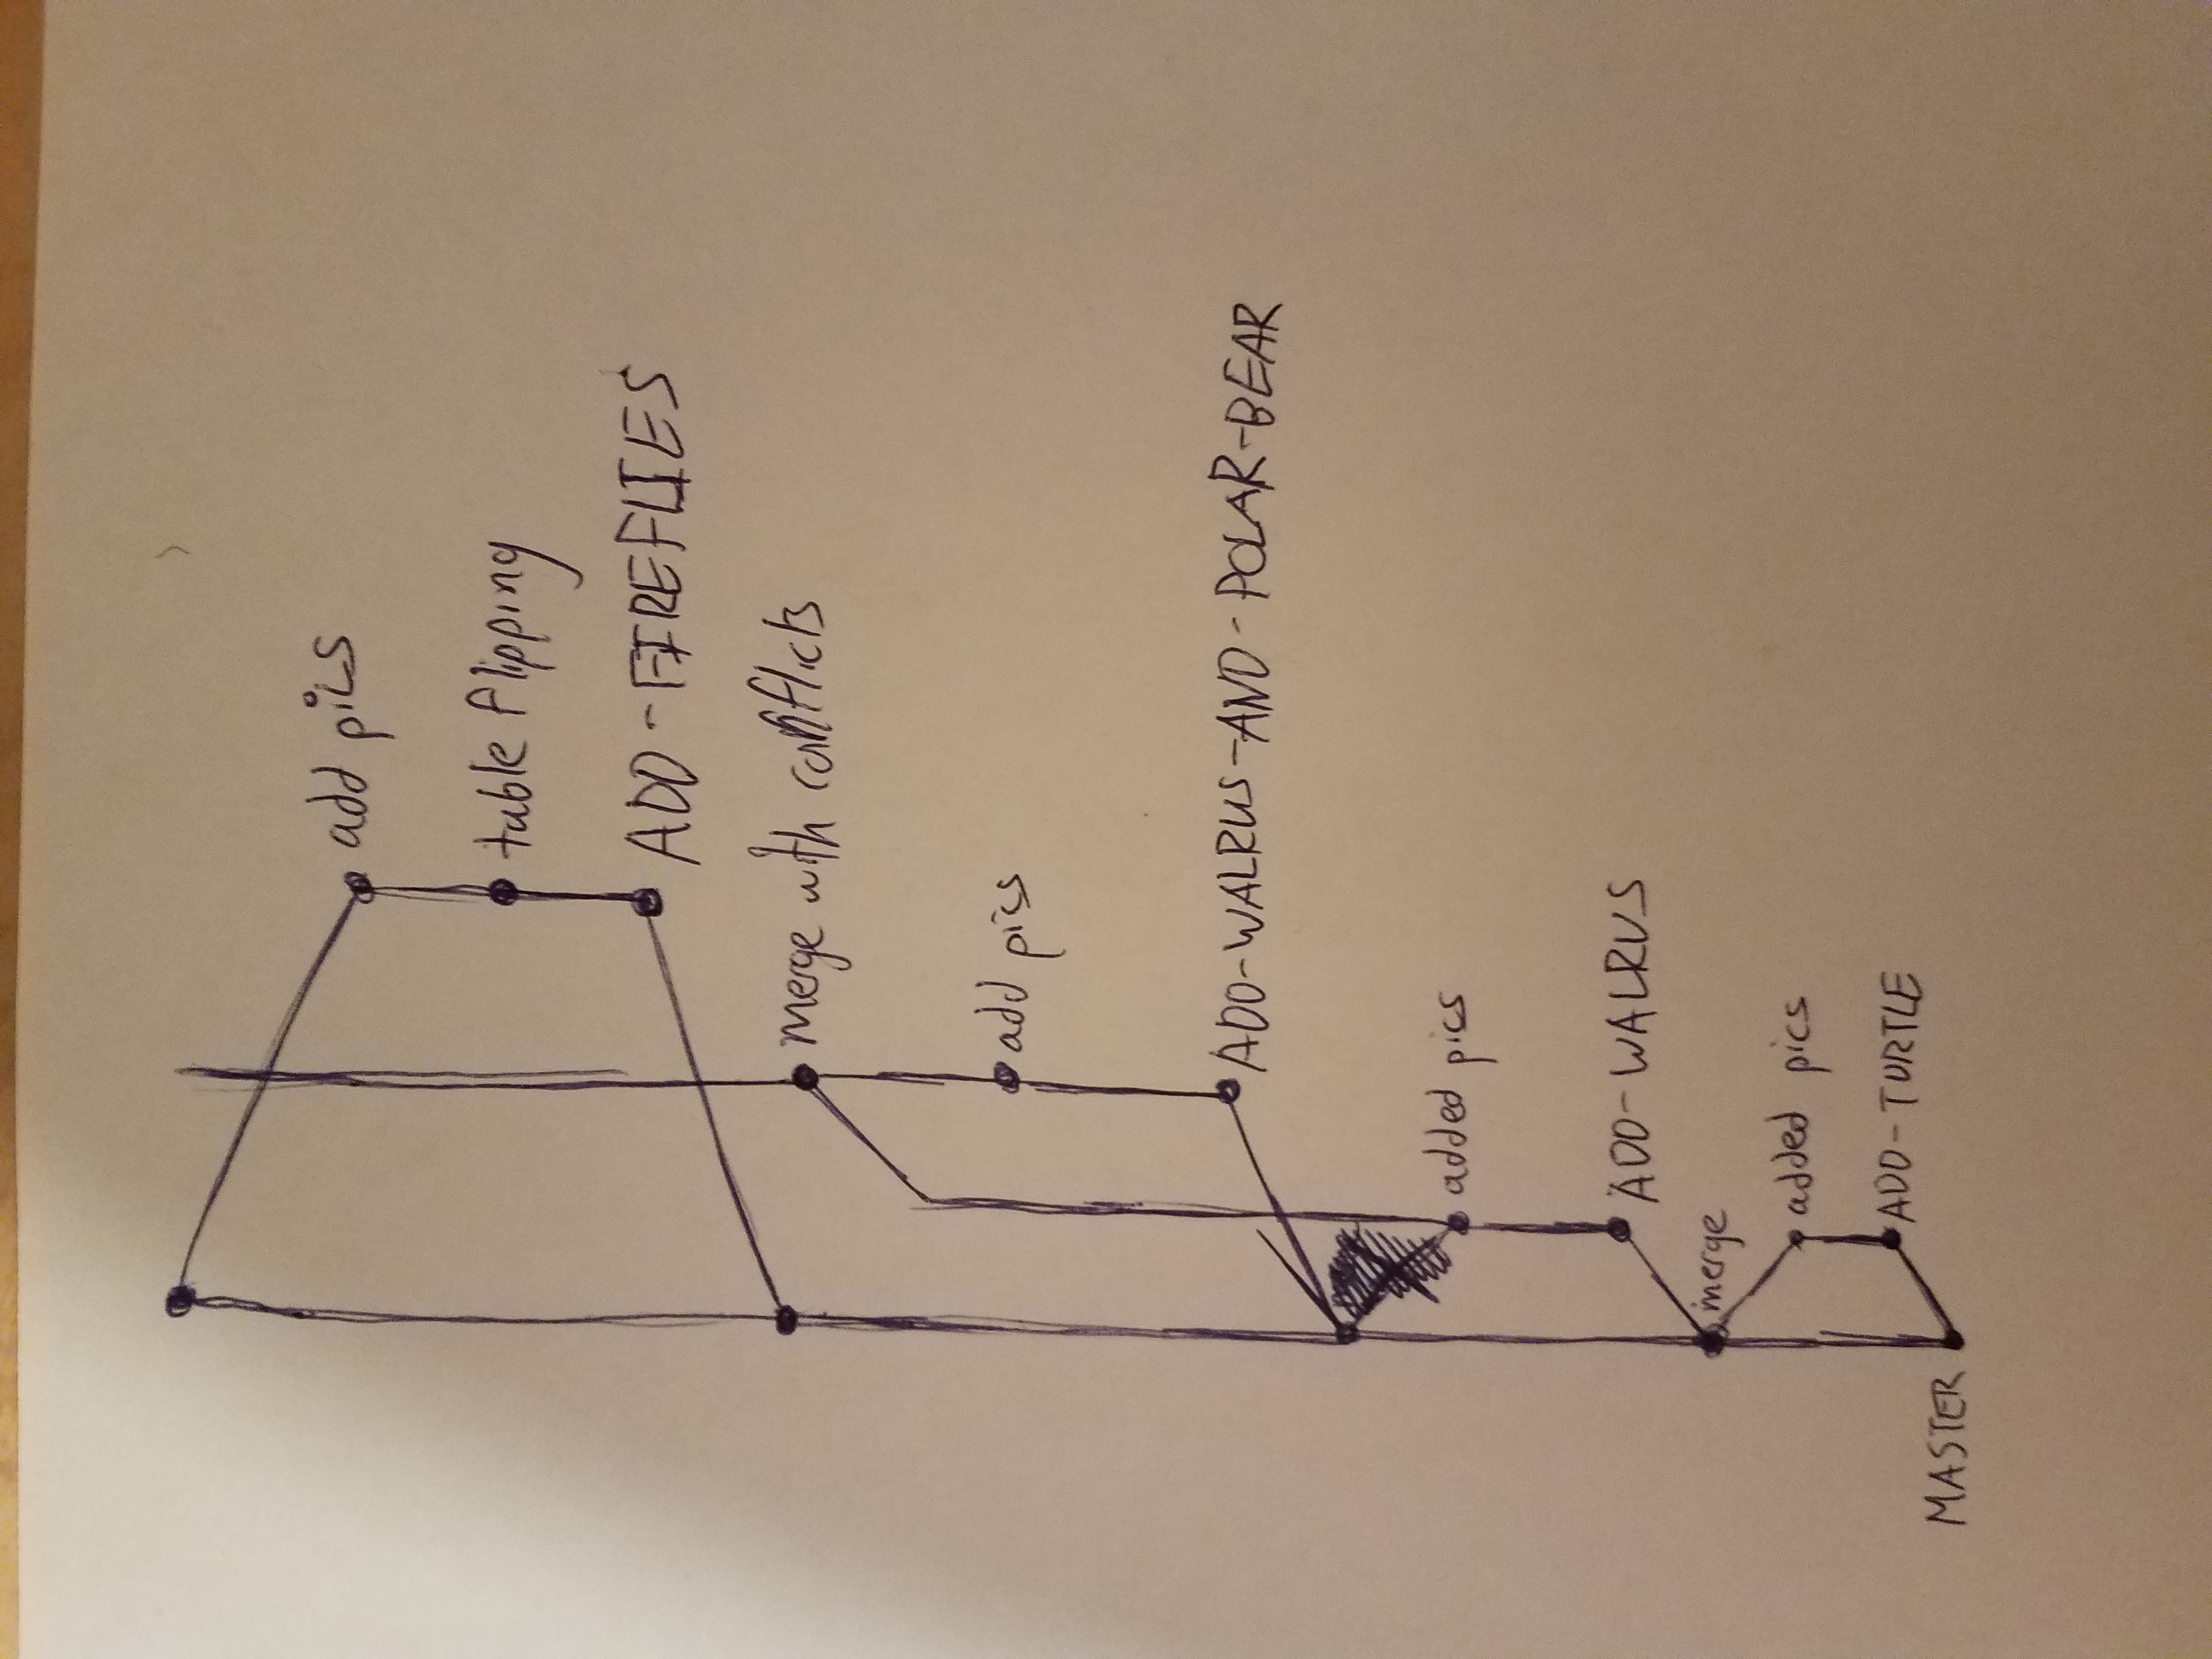 add pics
table flipping
ADD-FIREFLIES
merge with conflicts
add pics
ADD-WALRUS-AND-POLAR-BEAR
added pics
ADD-WALRUS
merge
added pics
ADD-TURTLE
MASTER